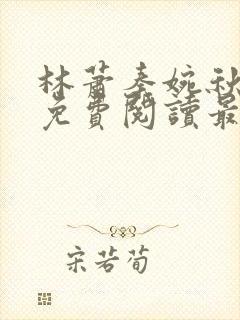 林蕭秦婉秋
免費閱讀最
宋若荀